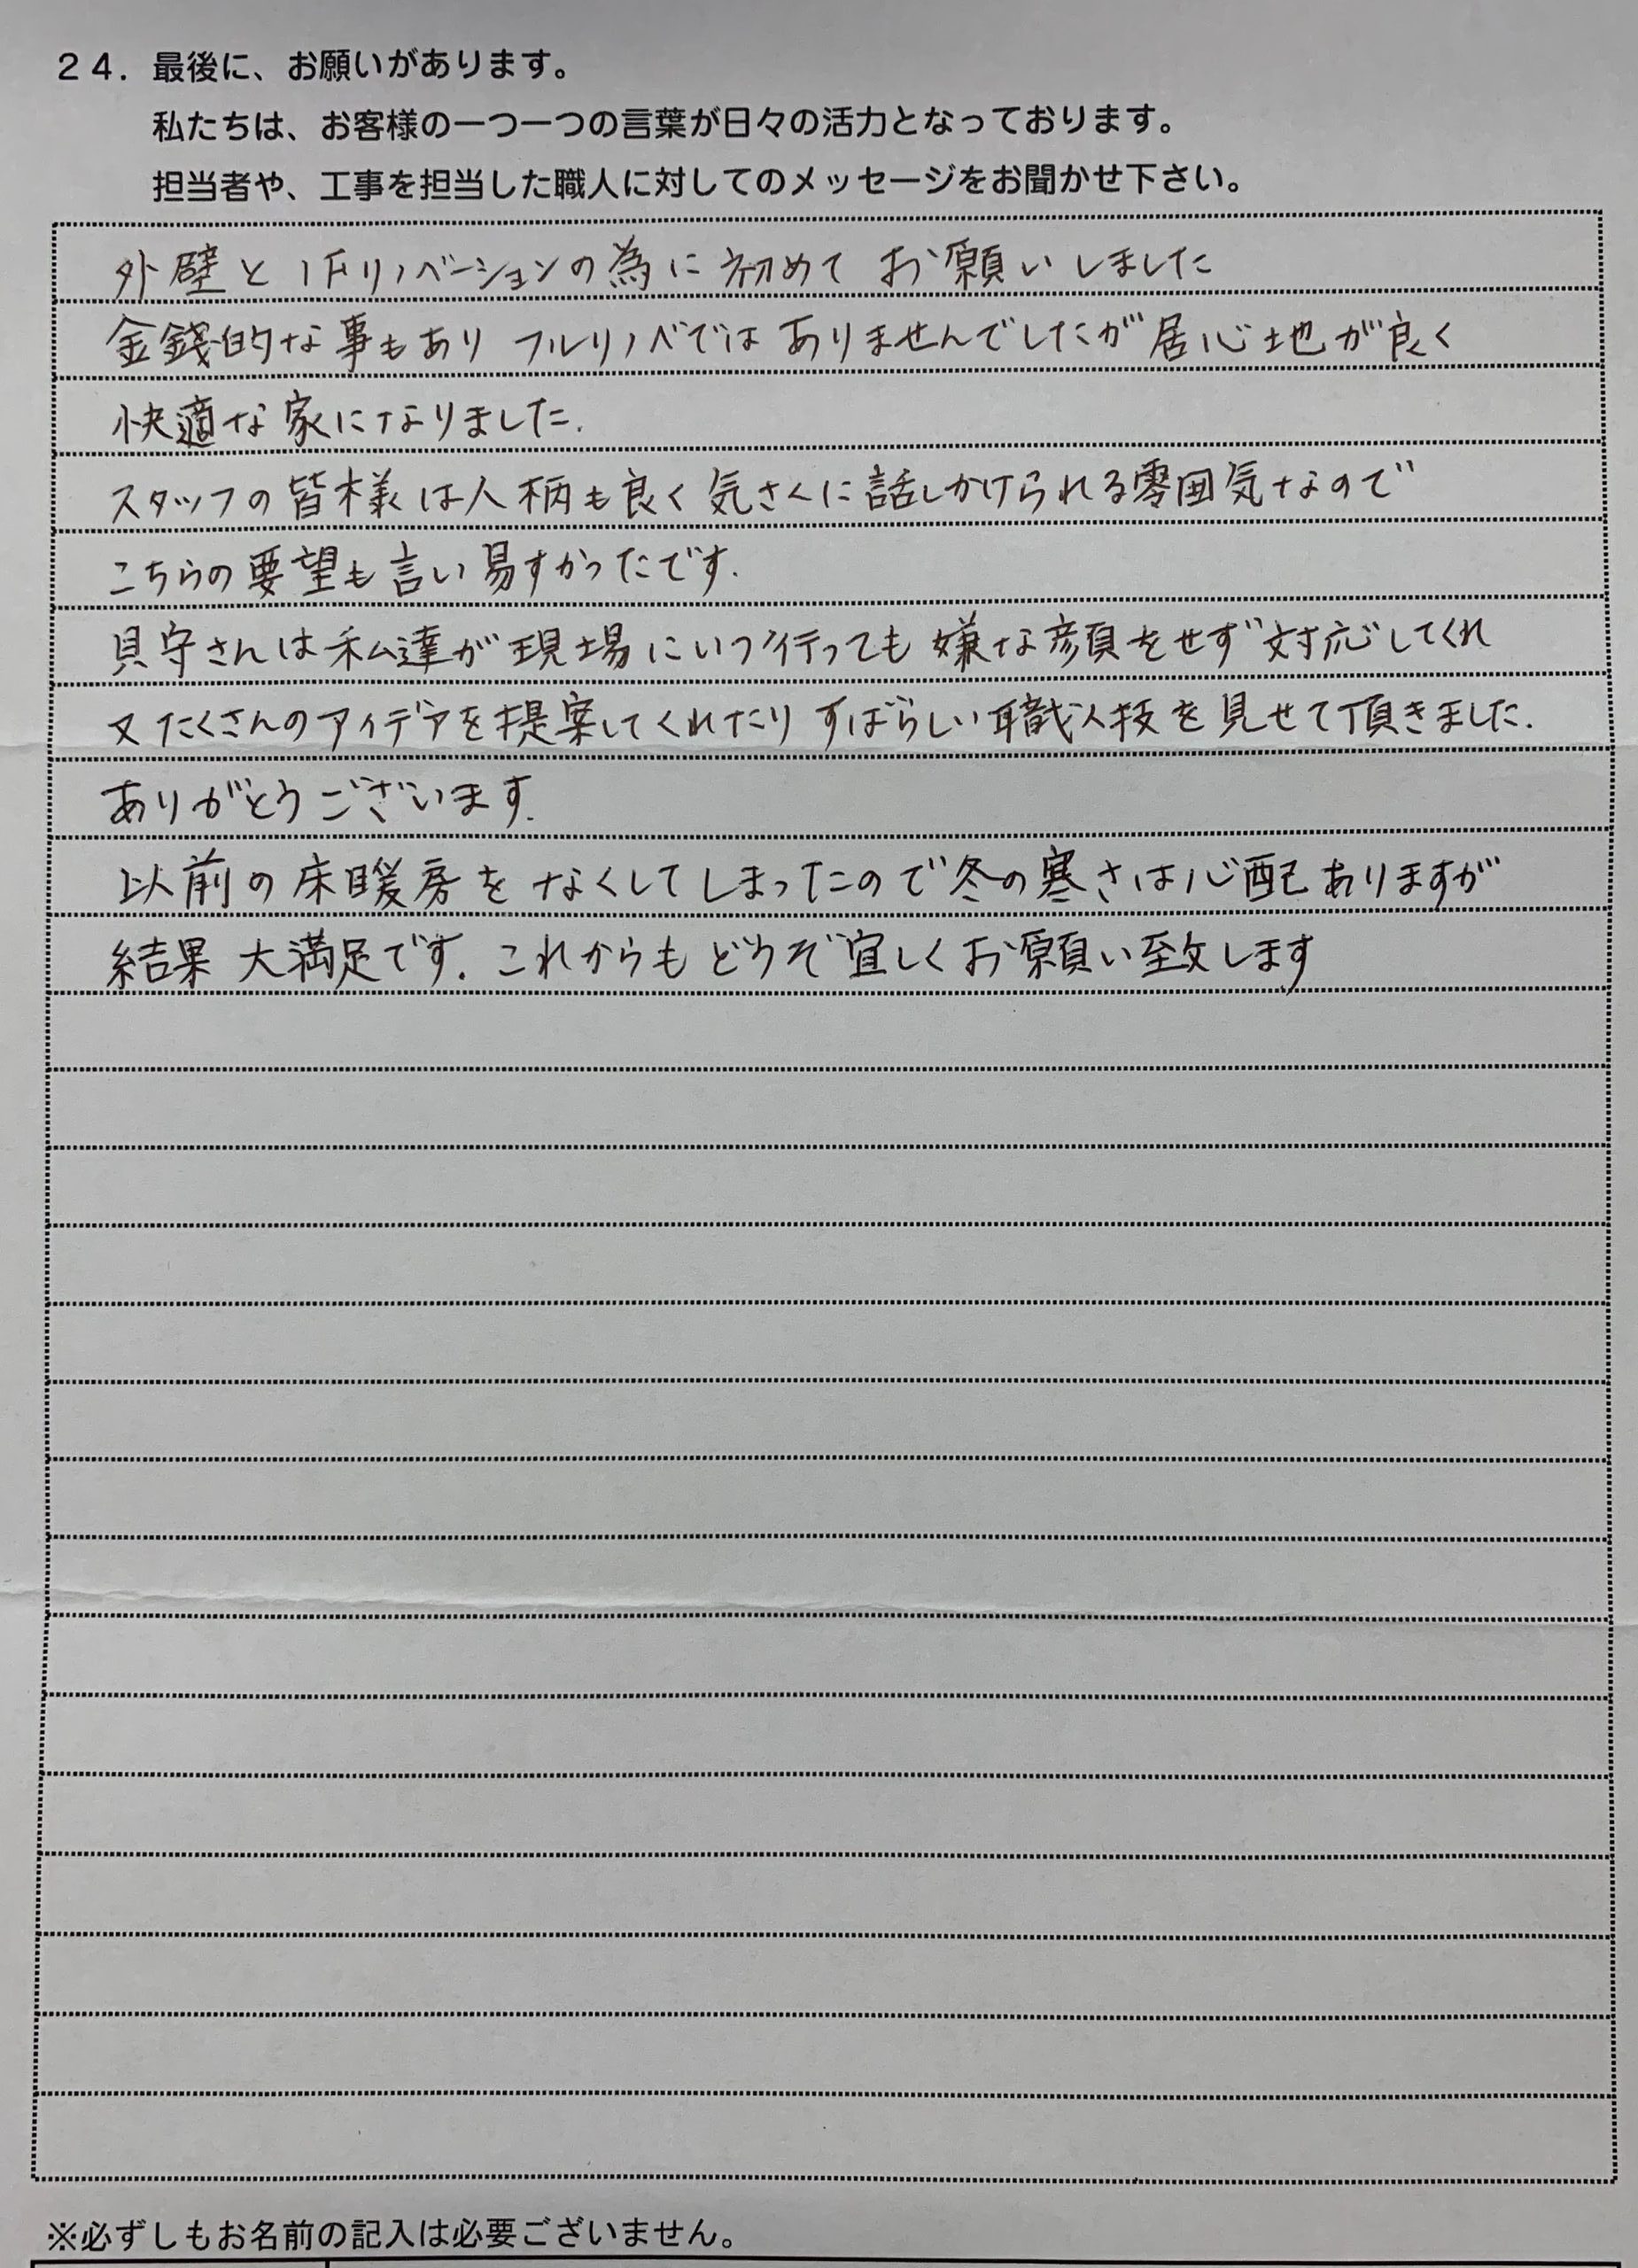 ２４．最後に、お願いがあります。
私たちは、お客様の一つ一つの言葉が日々の活力となっております。
担当者や、工事を担当した職人に対してのメッセージをお聞かせ下さい。
外壁と1Fリノベーションの為に初めてお願いしました
金銭的な事もあり フルリノベではありませんでしたが居心地が良く
快適な家になりました.
スタッフの皆様は人柄も良く気さくに話しかけられる雰囲気なので
こちらの要望も言い易すかったです.
貝守さんは私達が現場にいつ行っても嫌な顔をせず対応してくれ
又たくさんのアイデアを提案してくれたりすばらしい職人技を見せて頂きました.
ありがとうございます.
以前の床暖房をなくしてしまったので冬の寒さは心配ありますが
結果 大満足です. これからもどうぞ宜しくお願い致します
※必ずしもお名前の記入は必要ございません。